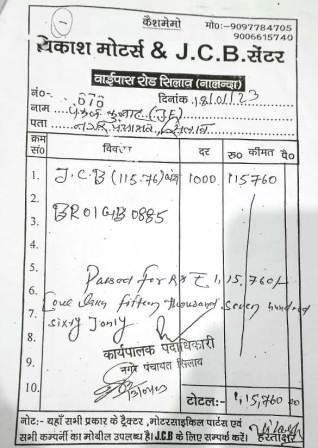 कैशमेमो
मो०:-9097784705
9006615740
विकाश मोटर्स & J.C.B.सेंटर
वाईपास रोड सिलाव (नालन्दा)
नं०- 070 दिनांक 18/01/23
नाम कुमार (J.E)
पता नगर पंचायत, सिलाव
क्रम सं० विवरण दर रु० कीमत पै०
1. J.C.B (115.76) घंटा 1000 115760
2. BR01GB0885
3.
4.
5. Passed for Rs ₹ 1,15,760/-
6. (one lakh fifteen thousand seven hundred
7. sixty) only
8. कार्यपालक पदाधिकारी
9. नगर पंचायत सिलाव
10. टोटल:- 1,15,760 00
नोट:- यहाँ सभी प्रकार के ट्रैक्टर, मोटरसाइकिल पार्टस एवं
सभी कम्पनी का मोबील उपलब्ध है। J.C.B के लिए सम्पर्क करें। हस्ताक्षर